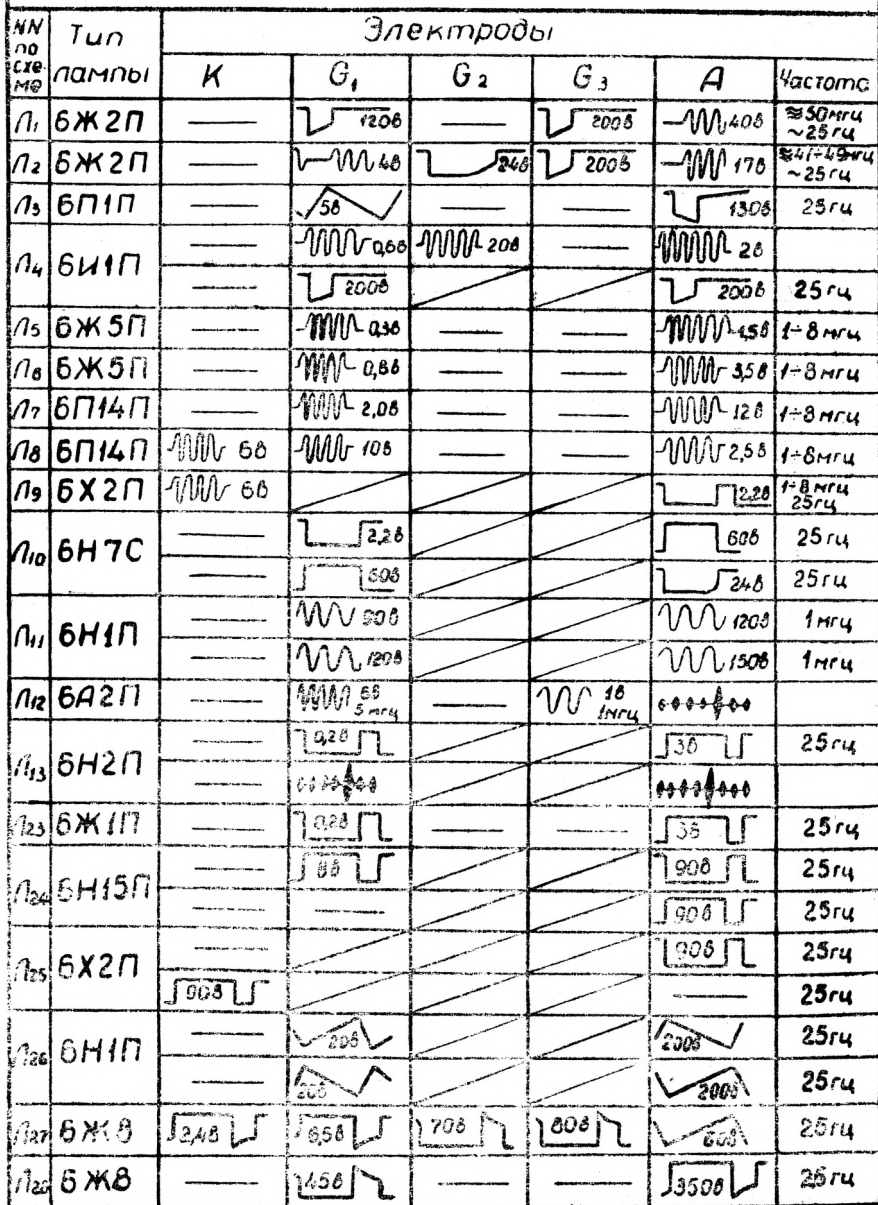 NN по схеме Тип лампы Электроды
К G₁ G₂ G₃ А Частота
Л₁ 6Ж2П — 120в — 200в 40в ≋50мгц ~25гц
Л₂ 6Ж2П — 4в 24в 200в 17в ≋41÷49мгц ~25гц
Л₃ 6П1П — 5в — — 130в 25гц
Л₄ 6И1П — 0,6в 20в — 2в
— 200в 200в 25гц
Л₅ 6Ж5П — 0,3в — — 1,5в 1÷8мгц
Л₆ 6Ж5П — 0,8в — — 3,5в 1÷8мгц
Л₇ 6П14П — 2,0в — — 12в 1÷8мгц
Л₈ 6П14П 6в 10в — — 2,5в 1÷8мгц
Л₉ 6Х2П 6в 2,2в 1÷8мгц 25гц
Л₁₀ 6Н7С — 2,2в 60в 25гц
— 60в 24в 25гц
Л₁₁ 6Н1П — 90в 120в 1мгц
— 120в 150в 1мгц
Л₁₂ 6А2П — 6в 5мгц — 1в 1мгц
Л₁₃ 6Н2П — 0,2в 3в 25гц
—
Л₂₃ 6Ж1П — 0,2в — — 3в 25гц
Л₂₄ 6Н15П — 8в 90в 25гц
— — 90в 25гц
Л₂₅ 6Х2П — 90в 25гц
90в — 25гц
Л₂₆ 6Н1П — 20в 200в 25гц
— 20в 200в 25гц
Л₂₇ 6Ж8 2,4в 6,5в 70в 80в 60в 25гц
Л₂₈ 6Ж8 — 45в — — 350в 25гц